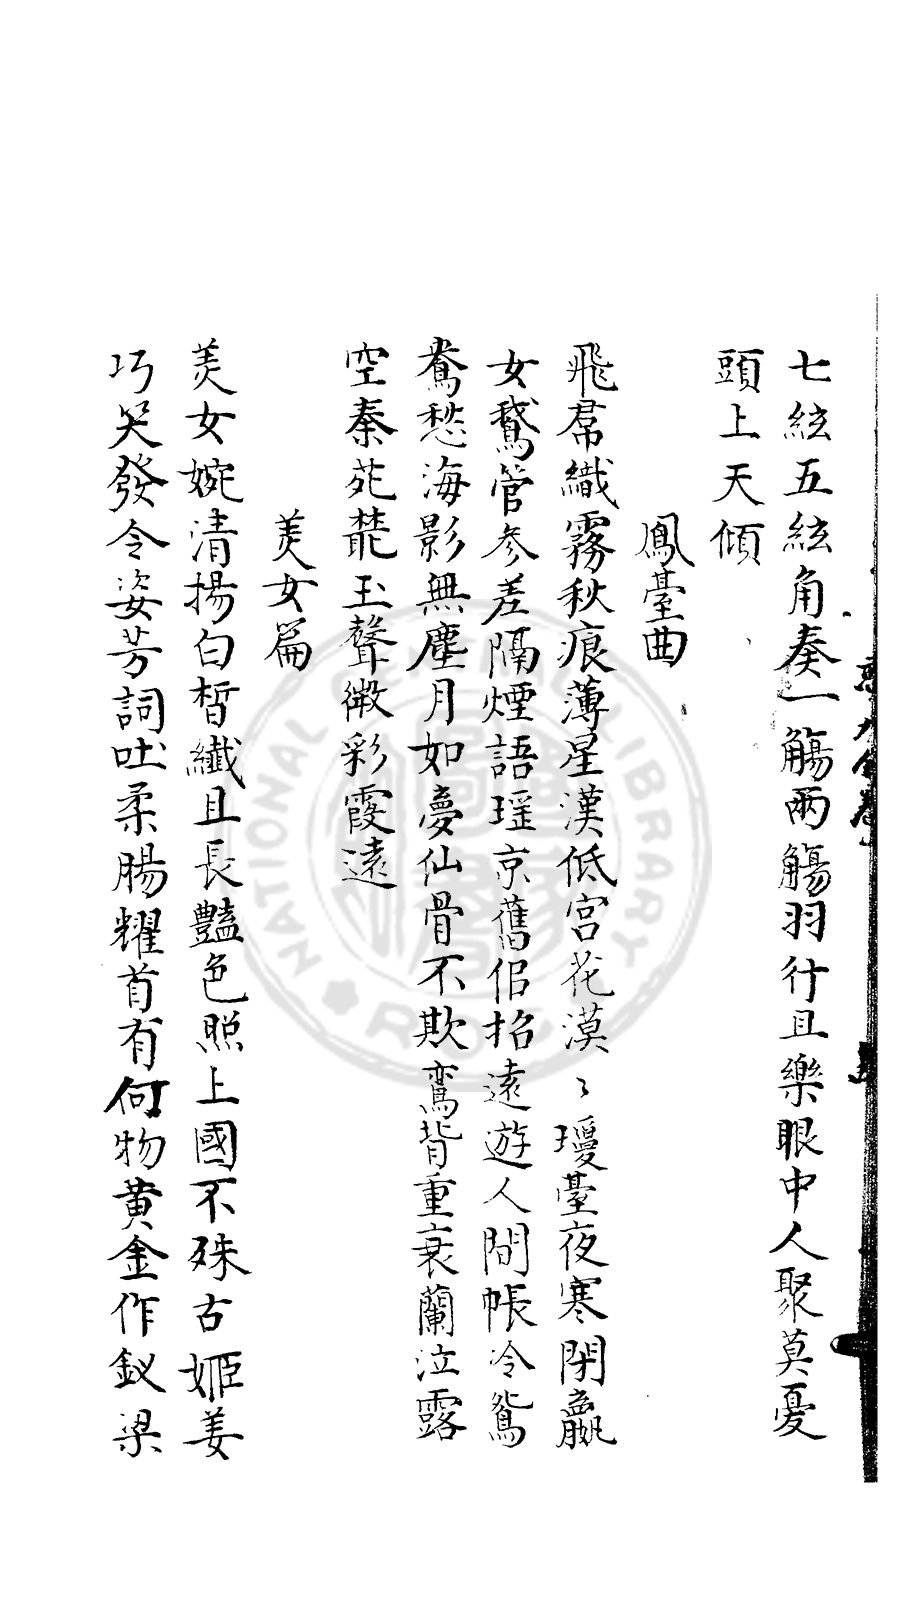 七絃五絃角奏一觴兩觴羽行且樂眼中人聚莫憂
頭上天傾
鳳臺曲
飛帬織霧秋痕薄星漢低宫花漠〻瓊臺夜寒閉嬴
女鵞管参差隔煙語瑶京舊侣招遠遊人間帳冷鴛
鴦愁海影無塵月如夢仙骨不欺鸞背重衰蘭泣露
空秦苑蓂玉聲微彩霞遠
美女篇
美女婉清揚白皙纖且長豔色照上國不殊古姬姜
巧笑發令姿芳詞吐柔腸耀首有何物黄金作釵梁
NATIONAL CENTRAL LIBRARY